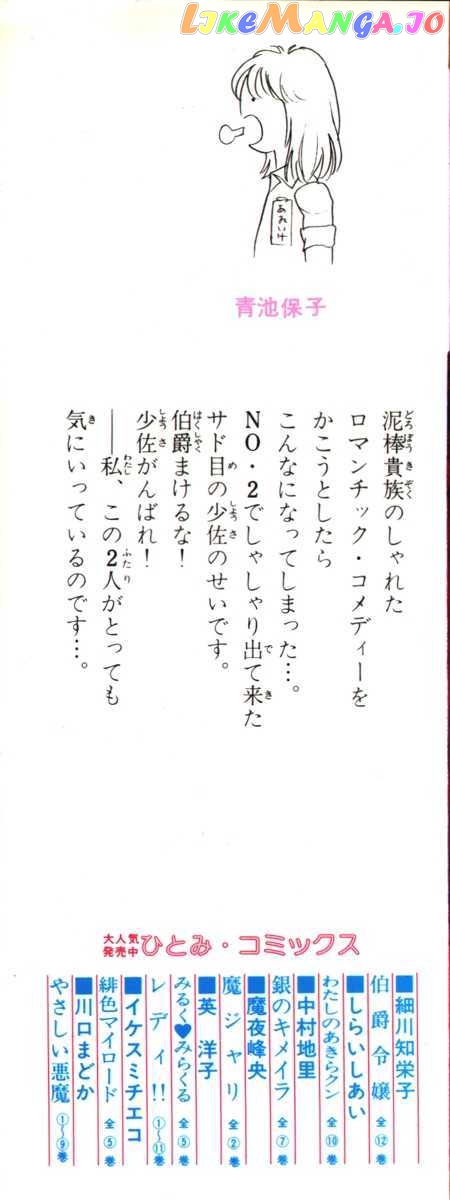 LIKEMANGA.IO
あおいけ
青池保子
泥棒貴族のしゃれた
ロマンチック・コメディーを
かこうとしたら
こんなになってしまった…。
NO・2でしゃしゃり出て来た
サド目の少佐のせいです。
伯爵まけるな！
少佐がんばれ！
――私、この2人がとっても
気にいっているのです…。
大人気
発売中
ひとみ・コミックス
■細川知栄子
伯爵令嬢 全⑫巻
■しらいしあい
わたしのあきらクン 全⑩巻
■中村地里
銀のキメイラ 全⑦巻
■魔夜峰央
魔ジャリ 全②巻
■英 洋子
みるく♥みらくる 全⑤巻
レディ!! ①〜⑪巻
■イケスミチエコ
緋色マイロード 全⑤巻
■川口まどか
やさしい悪魔 ①〜⑨巻